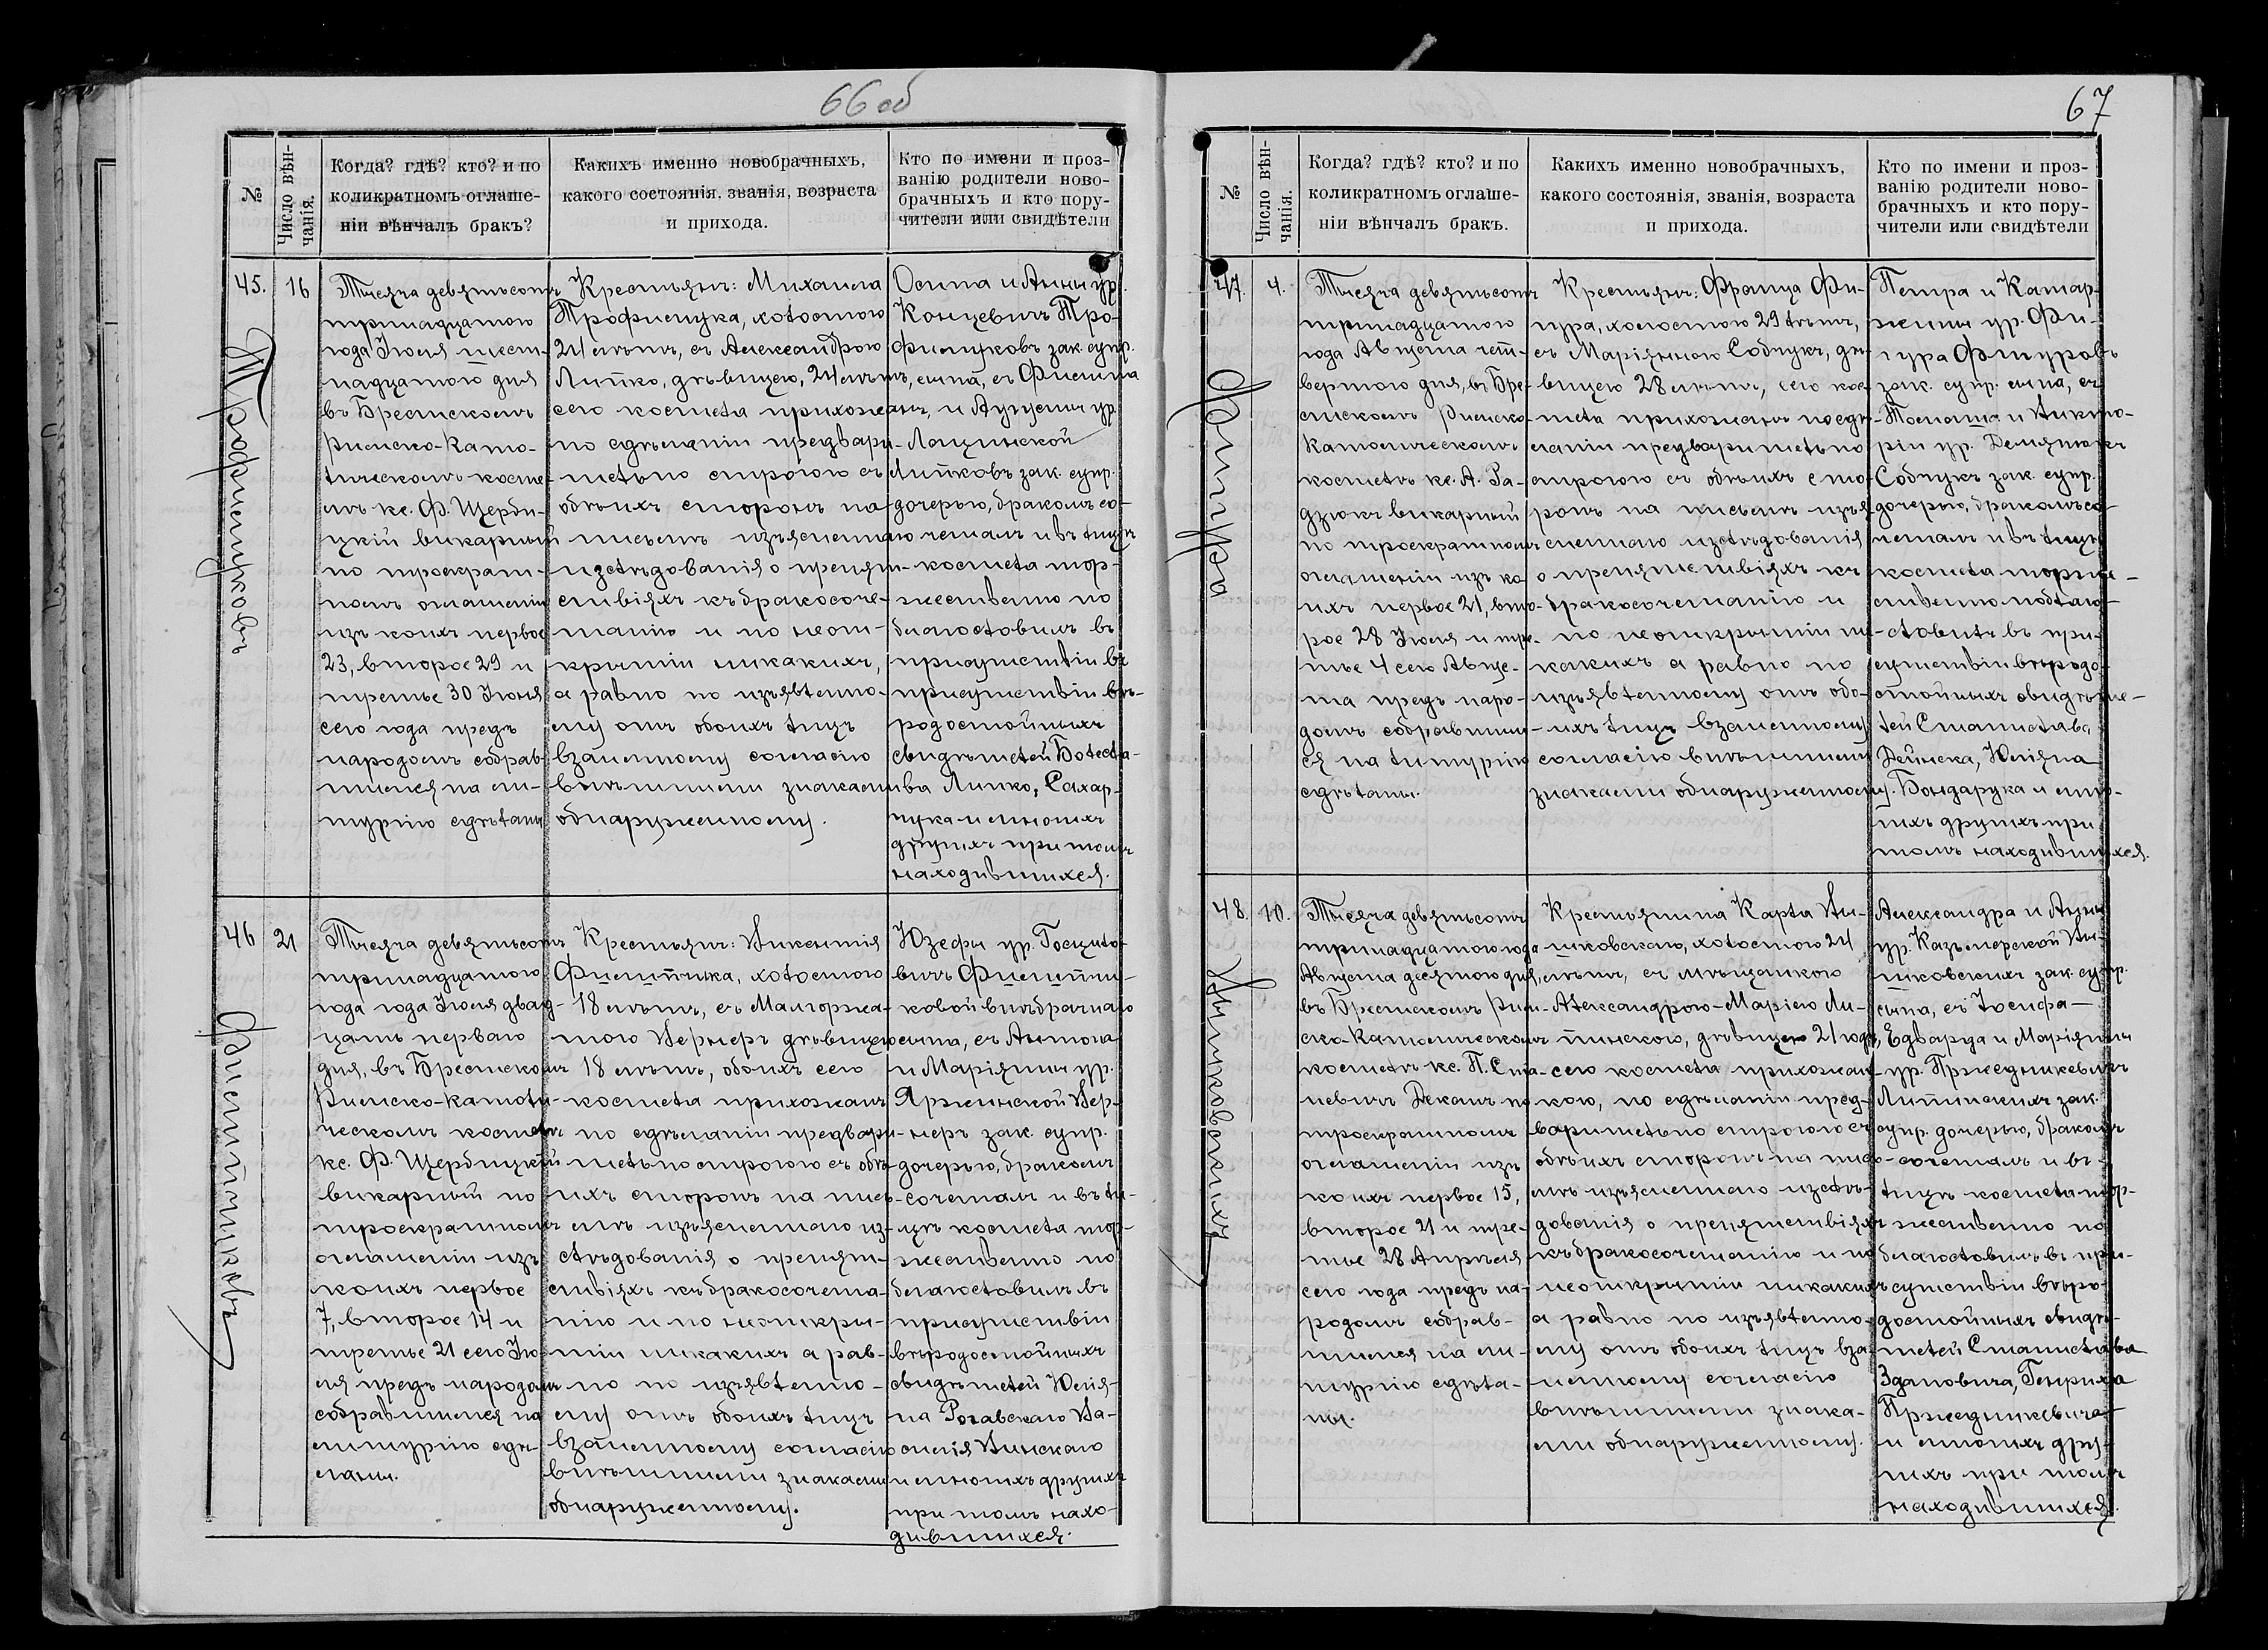 66 об
№
Число вѣн-
чанія.
Когда? гдѣ? кто? и по
коликратномъ оглаше-
ніи вѣнчалъ бракъ?
Какихъ именно новобрачныхъ,
какого состоянія, званія, возраста
и прихода.
Кто по имени и проз-
ванію родители ново-
брачныхъ и кто пору-
чители или свидѣтели
45.
16
Трофимуковъ
Тысяча девятьсотъ
тринадцатого
года Іюля шест-
надцатого дня
въ Брестскомъ
Римско-Като-
лическомъ косте-
лѣ кс. Ф. Щерби-
цкій викарный
по троекрат-
номъ оглашеніи
изъ коихъ первое
23, второе 29 и
третье 30 Іюня
сего года предъ
народомъ собрав-
шимся на ли-
тургію сдѣланы
Крестьянъ: Михаила
Трофимука, холостого
24 лѣтъ, съ Александрою
Липко, дѣвицею, 24 лѣтъ,
сего костела прихожанъ,
по сдѣланіи предвари-
тельно строгого съ
обѣихъ сторонъ на
письмѣ изъясненнаго
изслѣдованія о препят-
ствіяхъ къ бракосоче-
танію и по неот-
крытіи никакихъ,
а равно по изъявленно-
му отъ обоихъ лицъ
взаимному согласію
внѣшними знаками
обнаруженному.
Осипа и Анны ур.
Концевичъ Тро-
фимуковъ зак. супр.
сына, съ Филиппа
и Августы ур.
Лащинской
Липковъ зак. супр.
дочерью, бракомъ со-
четалъ и въ лицѣ
костела тор-
жественно по
благословилъ въ
присутствіи въ
присутствіи вѣ-
родостойныхъ
свидѣтелей Болесла-
ва Липко, Сахар-
чука и многихъ
другихъ при томъ
находившихся.
46
21
Филипчиковъ
Тысяча девятьсотъ
тринадцатого
года года Іюля двад-
цать перваго
дня, въ Брестскомъ
Римско-католи-
ческомъ костелѣ
кс. Ф. Щербицкій
викарный по
троекратномъ
оглашеніи изъ
коихъ первое
7, второе 14 и
третье 21 сего Ію-
ля предъ народомъ
собравшимся на
литургію сдѣ-
ланы.
Крестьянъ: Викентія
Филипчика, холостого
18 лѣтъ, съ Малгоржа-
тою Вернеръ дѣвицею
18 лѣтъ, обоихъ сего
костела прихожанъ
по сдѣланіи предвари-
тельно строгого съ обѣ-
ихъ сторонъ на пись-
мѣ изъясненнаго из-
слѣдованія о препят-
ствіяхъ къ бракосочета-
нію и по неоткры-
тіи никакихъ а рав-
но по изъявленно-
му отъ обоихъ лицъ
взаимному согласію
внѣшними знаками
обнаруженному.
Юзефы ур. Госцило-
вичъ Филипчи-
ковой внѣбрачнаго
сына, съ Антона
и Маріянны ур.
Яржинской Вер-
неръ зак. супр.
дочерью, бракомъ
сочеталъ и въ ли-
цѣ костела тор-
жественно по
благословилъ въ
присутствіи
вѣродостойныхъ
свидѣтелей Юлія-
на Рогавскаго Ва-
силія Винскаго
и многихъ другихъ
при томъ нахо-
дившихся.
67
№
Число вѣн-
чанія.
Когда? гдѣ? кто? и по
коликратномъ оглаше-
ніи вѣнчалъ бракъ.
Какихъ именно новобрачныхъ,
какого состоянія, званія, возраста
и прихода.
Кто по имени и проз-
ванію родители ново-
брачныхъ и кто пору-
чители или свидѣтели
47.
4.
Фигура
Тысяча девятьсотъ
тринадцатого
года Августа чет-
вертого дня, въ Бре-
стскомъ Римско-
Католическомъ
костелѣ кс. А. Ра-
дзюкъ викарный
по троекратномъ
оглашеніи изъ ко-
ихъ первое 21, вто-
рое 28 Іюля и тре-
тье 4 сего Авгус-
та предъ наро-
домъ собравшим-
ся на литургію
сдѣланы.
Крестьянъ: Франца Фи-
гура, холостого 29 лѣтъ,
съ Маріянною Собчукъ, дѣ-
вицею 28 лѣтъ, сего кос-
тела прихожанъ по сдѣ-
ланіи предварительно
строгого съ обѣихъ сто-
ронъ на письмѣ изъя-
сненнаго изслѣдованія
о препятствіяхъ къ
бракосочетанію и
по неоткрытіи ни-
какихъ а равно по
изъявленному отъ обо-
ихъ лицъ взаимному
согласію внѣшними
знаками обнаруженному.
Петра и Катар-
жины ур. Фи-
гура Фигуровъ
зак. супр. сына, съ
Томаша и Викто-
ріи ур. Демянюкъ
Собчукъ зак. супр.
дочерью, бракомъ со-
четалъ и въ лицѣ
костела торже-
ственно поблаго-
словилъ въ при-
сутствіи вѣродо-
стойныхъ свидѣте-
лей Станислава
Дейнека, Юліяна
Бондарука и мно-
гихъ другихъ при
томъ находившихся.
48.
10.
Вишковскихъ
Тысяча девятьсотъ
тринадцатого года
Августа десятого дня,
въ Брестскомъ Рим-
ско-Католическомъ
костелѣ кс. П. Ста-
невичъ Деканъ по
троекратномъ
оглашеніи изъ
коихъ первое 15,
второе 21 и тре-
тье 28 Апрѣля
сего года предъ на-
родомъ собрав-
шимся на ли-
тургію сдѣла-
ны.
Крестьянина Карла Ви-
шковскаго, холостого 24
лѣтъ, съ мѣщанкою
Александрою-Маріею Ли-
пинскою, дѣвицею 21 года,
сего костела прихожан-
кою, по сдѣланіи пред-
варительно строгого съ
обѣихъ сторонъ на пись-
мѣ изъясненнаго изслѣ-
дованія о препятствіяхъ
къ бракосочетанію и по
неоткрытіи никакихъ
а равно по изъявленно-
му отъ обоихъ лицъ вза-
имному согласію
внѣшними знака-
ми обнаруженному.
Александра и Анны
ур. Казьмерской Ви-
шковскихъ зак. супр.
сына, съ Іосифа-
Едварда и Маріянны
ур. Пржедникевичъ
Липинскихъ зак.
супр. дочерью, бракомъ
сочеталъ и въ
лицѣ костела тор-
жественно по
благословилъ въ при-
сутствіи вѣро-
достойныхъ свидѣ-
телей Станислава
Здановича, Генриха
Пржедникевича
и многихъ дру-
гихъ при томъ
находившихся.